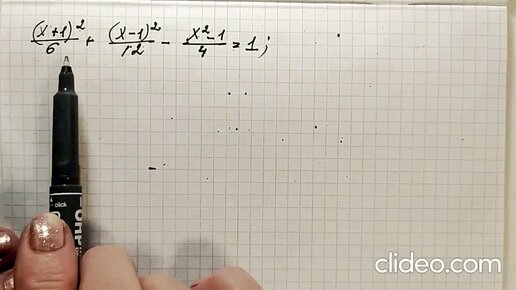 (x+1)²/6 + (x-1)²/12 - x²-1/4 = 1;
click
OHP
clideo.com